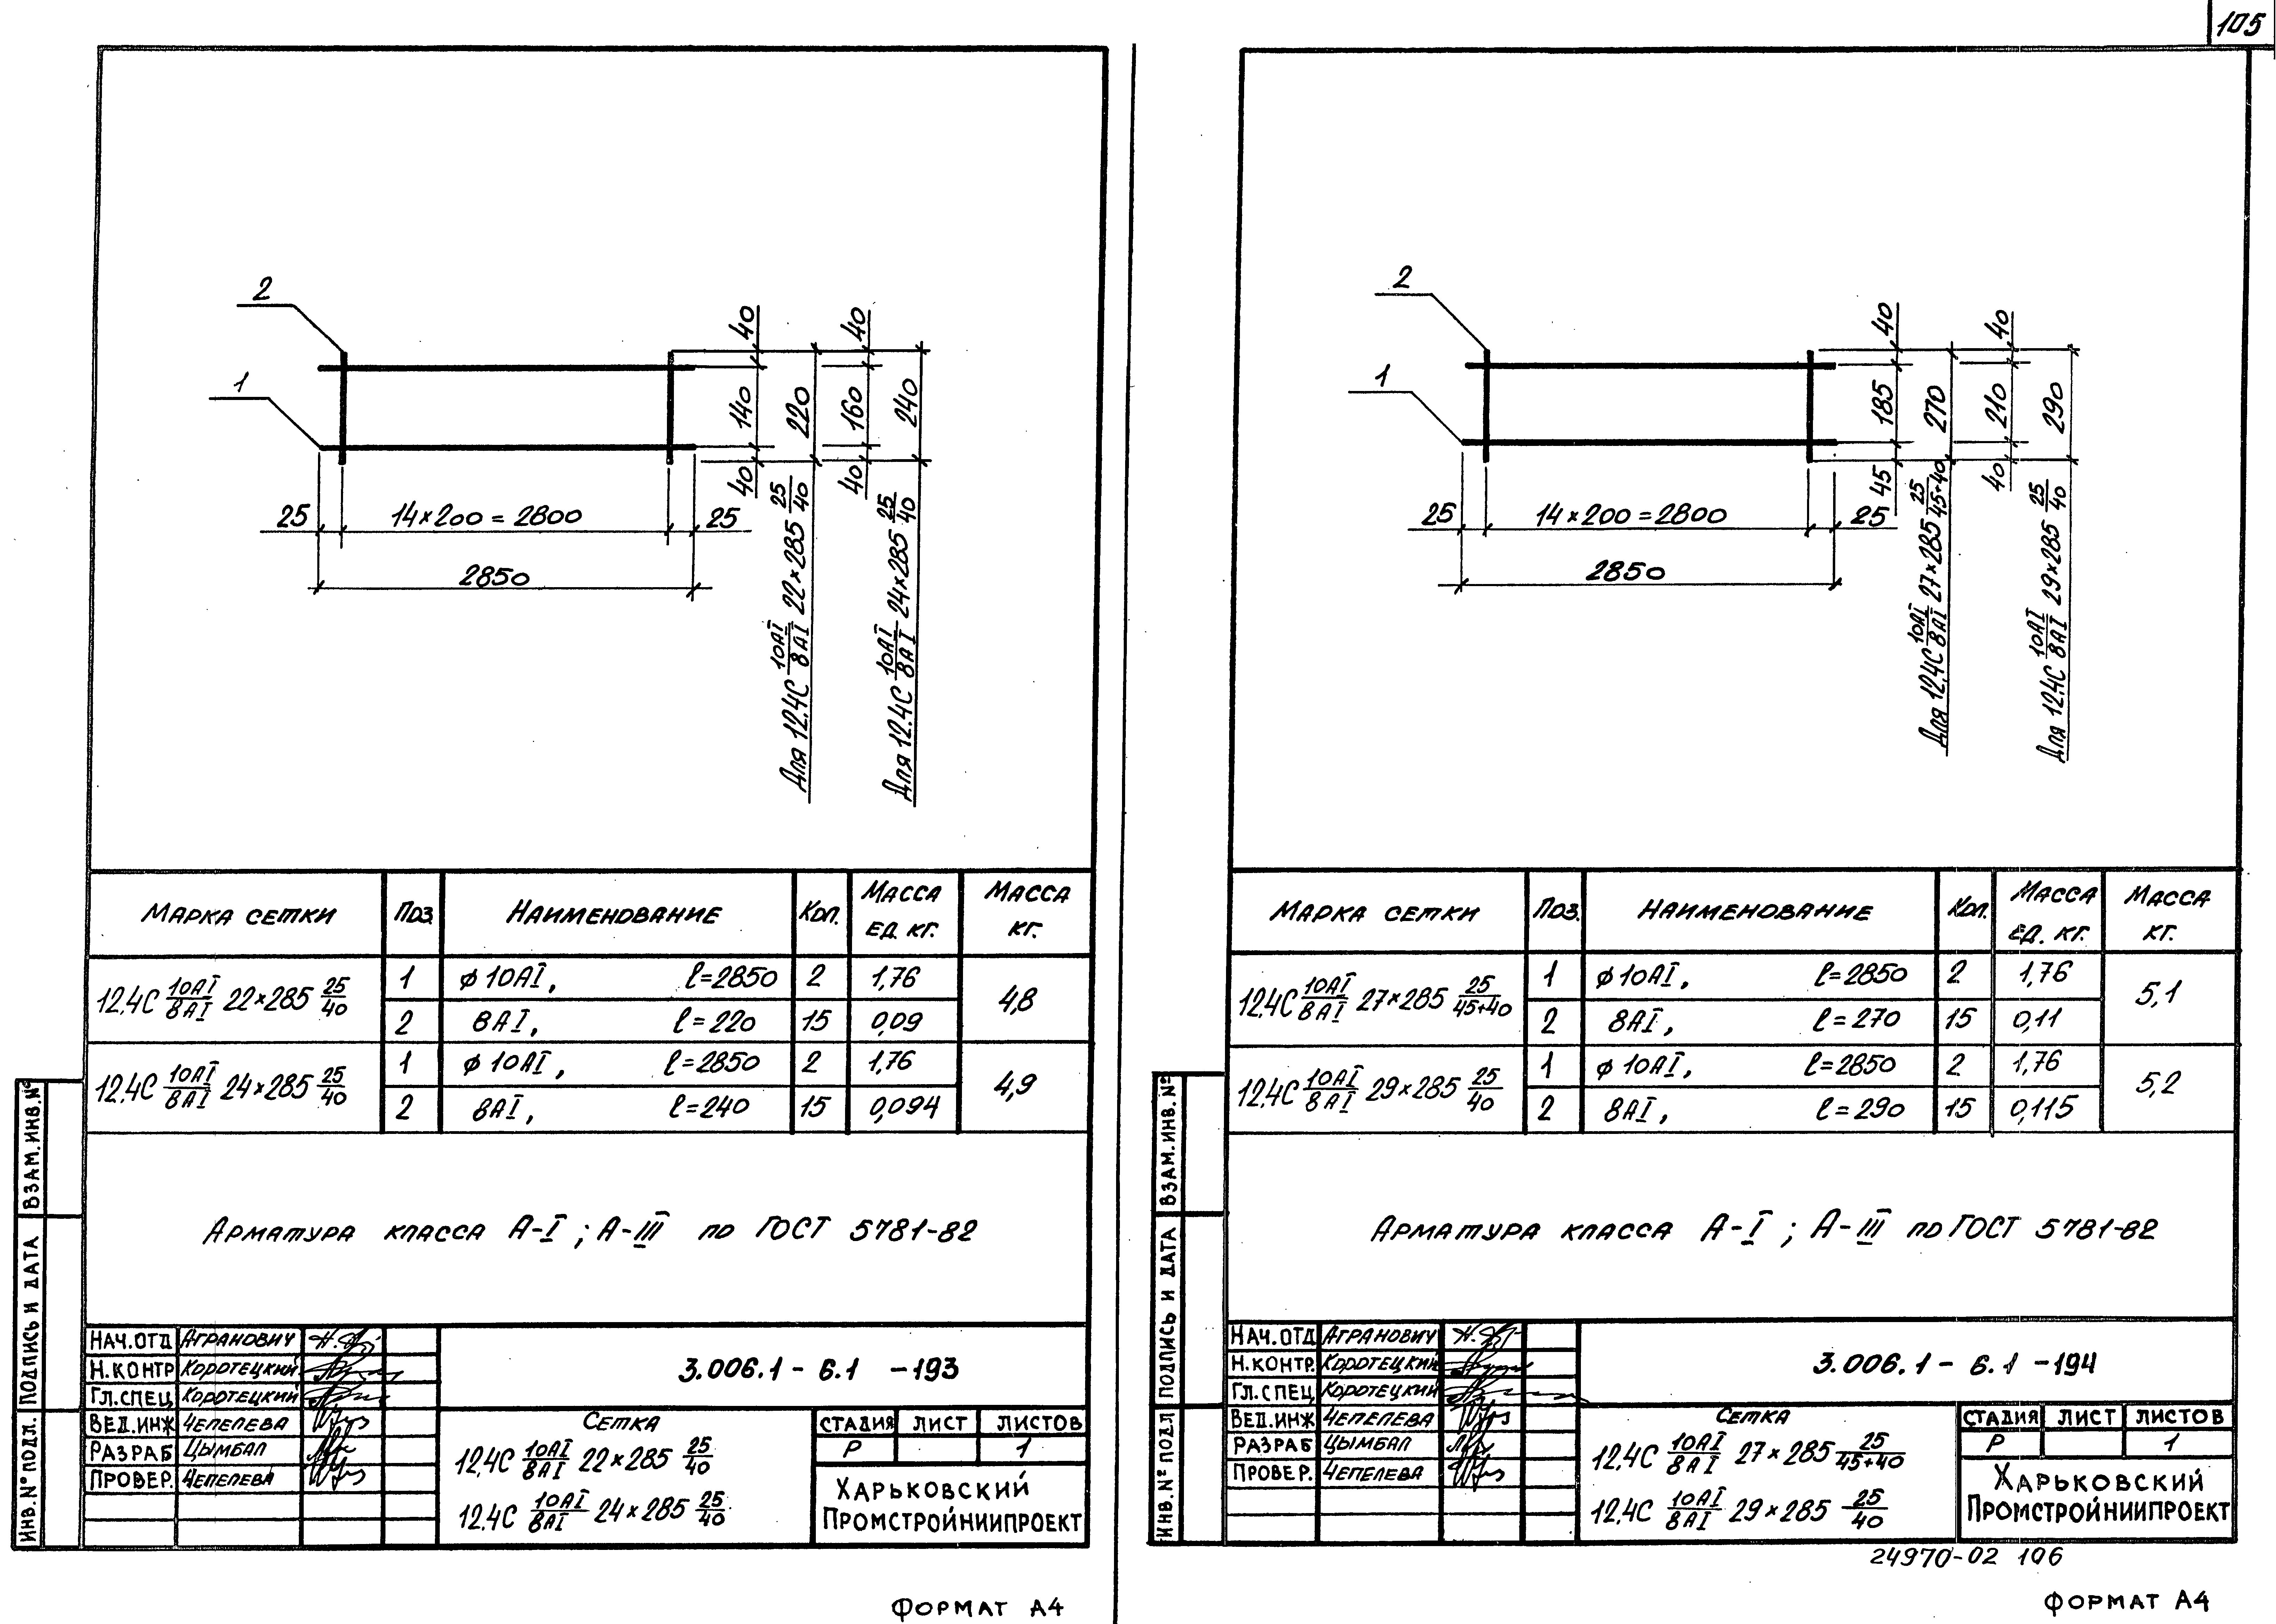 105
2
1
40
140
40
220
40
160
40
240
25
14×200=2800
25
2850
Для 12.4С 10АĪ/8АĪ 22×285 25/40
Для 12.4С 10АĪ/8АĪ 24×285 25/40
МАРКА СЕТКИ ПОЗ. НАИМЕНОВАНИЕ КОЛ. МАССА ЕД. КГ. МАССА КГ.
12.4С 10АĪ/8АĪ 22×285 25/40 1 ϕ10АĪ, ℓ=2850 2 1,76 4,8
2 8АĪ, ℓ=220 15 0,09
12.4С 10АĪ/8АĪ 24×285 25/40 1 ϕ10АĪ, ℓ=2850 2 1,76 4,9
2 8АĪ, ℓ=240 15 0,094
АРМАТУРА КЛАССА А-Ī; А-ĪĪĪ ПО ГОСТ 5781-82
ВЗАМ.ИНВ.№
ПОДПИСЬ И ДАТА
ИНВ.№ ПОДЛ.
НАЧ.ОТД АГРАНОВИЧ
Н.КОНТР КОРОТЕЦКИЙ
ГЛ.СПЕЦ КОРОТЕЦКИЙ
ВЕД.ИНЖ ЧЕПЕЛЕВА
РАЗРАБ ЦЫМБАЛ
ПРОВЕР. ЧЕПЕЛЕВА
3.006.1-6.1 -193
СЕТКА
12.4С 10АĪ/8АĪ 22×285 25/40
12.4С 10АĪ/8АĪ 24×285 25/40
СТАДИЯ ЛИСТ ЛИСТОВ
Р 1
ХАРЬКОВСКИЙ
ПРОМСТРОЙНИИПРОЕКТ
ФОРМАТ А4
2
1
40
185
45
270
40
210
40
290
25
14×200=2800
25
2850
Для 12.4С 10АĪ/8АĪ 27×285 25/45+40
Для 12.4С 10АĪ/8АĪ 29×285 25/40
МАРКА СЕТКИ ПОЗ. НАИМЕНОВАНИЕ КОЛ. МАССА ЕД. КГ. МАССА КГ.
12.4С 10АĪ/8АĪ 27×285 25/45+40 1 ϕ10АĪ, ℓ=2850 2 1,76 5,1
2 8АĪ, ℓ=270 15 0,11
12.4С 10АĪ/8АĪ 29×285 25/40 1 ϕ10АĪ, ℓ=2850 2 1,76 5,2
2 8АĪ, ℓ=290 15 0,115
АРМАТУРА КЛАССА А-Ī; А-ĪĪĪ ПО ГОСТ 5781-82
ВЗАМ.ИНВ.№
ПОДПИСЬ И ДАТА
ИНВ.№ ПОДЛ
НАЧ.ОТД АГРАНОВИЧ
Н.КОНТР. КОРОТЕЦКИЙ
ГЛ.СПЕЦ КОРОТЕЦКИЙ
ВЕД.ИНЖ ЧЕПЕЛЕВА
РАЗРАБ ЦЫМБАЛ
ПРОВЕР. ЧЕПЕЛЕВА
3.006.1-6.1 -194
СЕТКА
12.4С 10АĪ/8АĪ 27×285 25/45+40
12.4С 10АĪ/8АĪ 29×285 25/40
СТАДИЯ ЛИСТ ЛИСТОВ
Р 1
ХАРЬКОВСКИЙ
ПРОМСТРОЙНИИПРОЕКТ
24970-02 106
ФОРМАТ А4